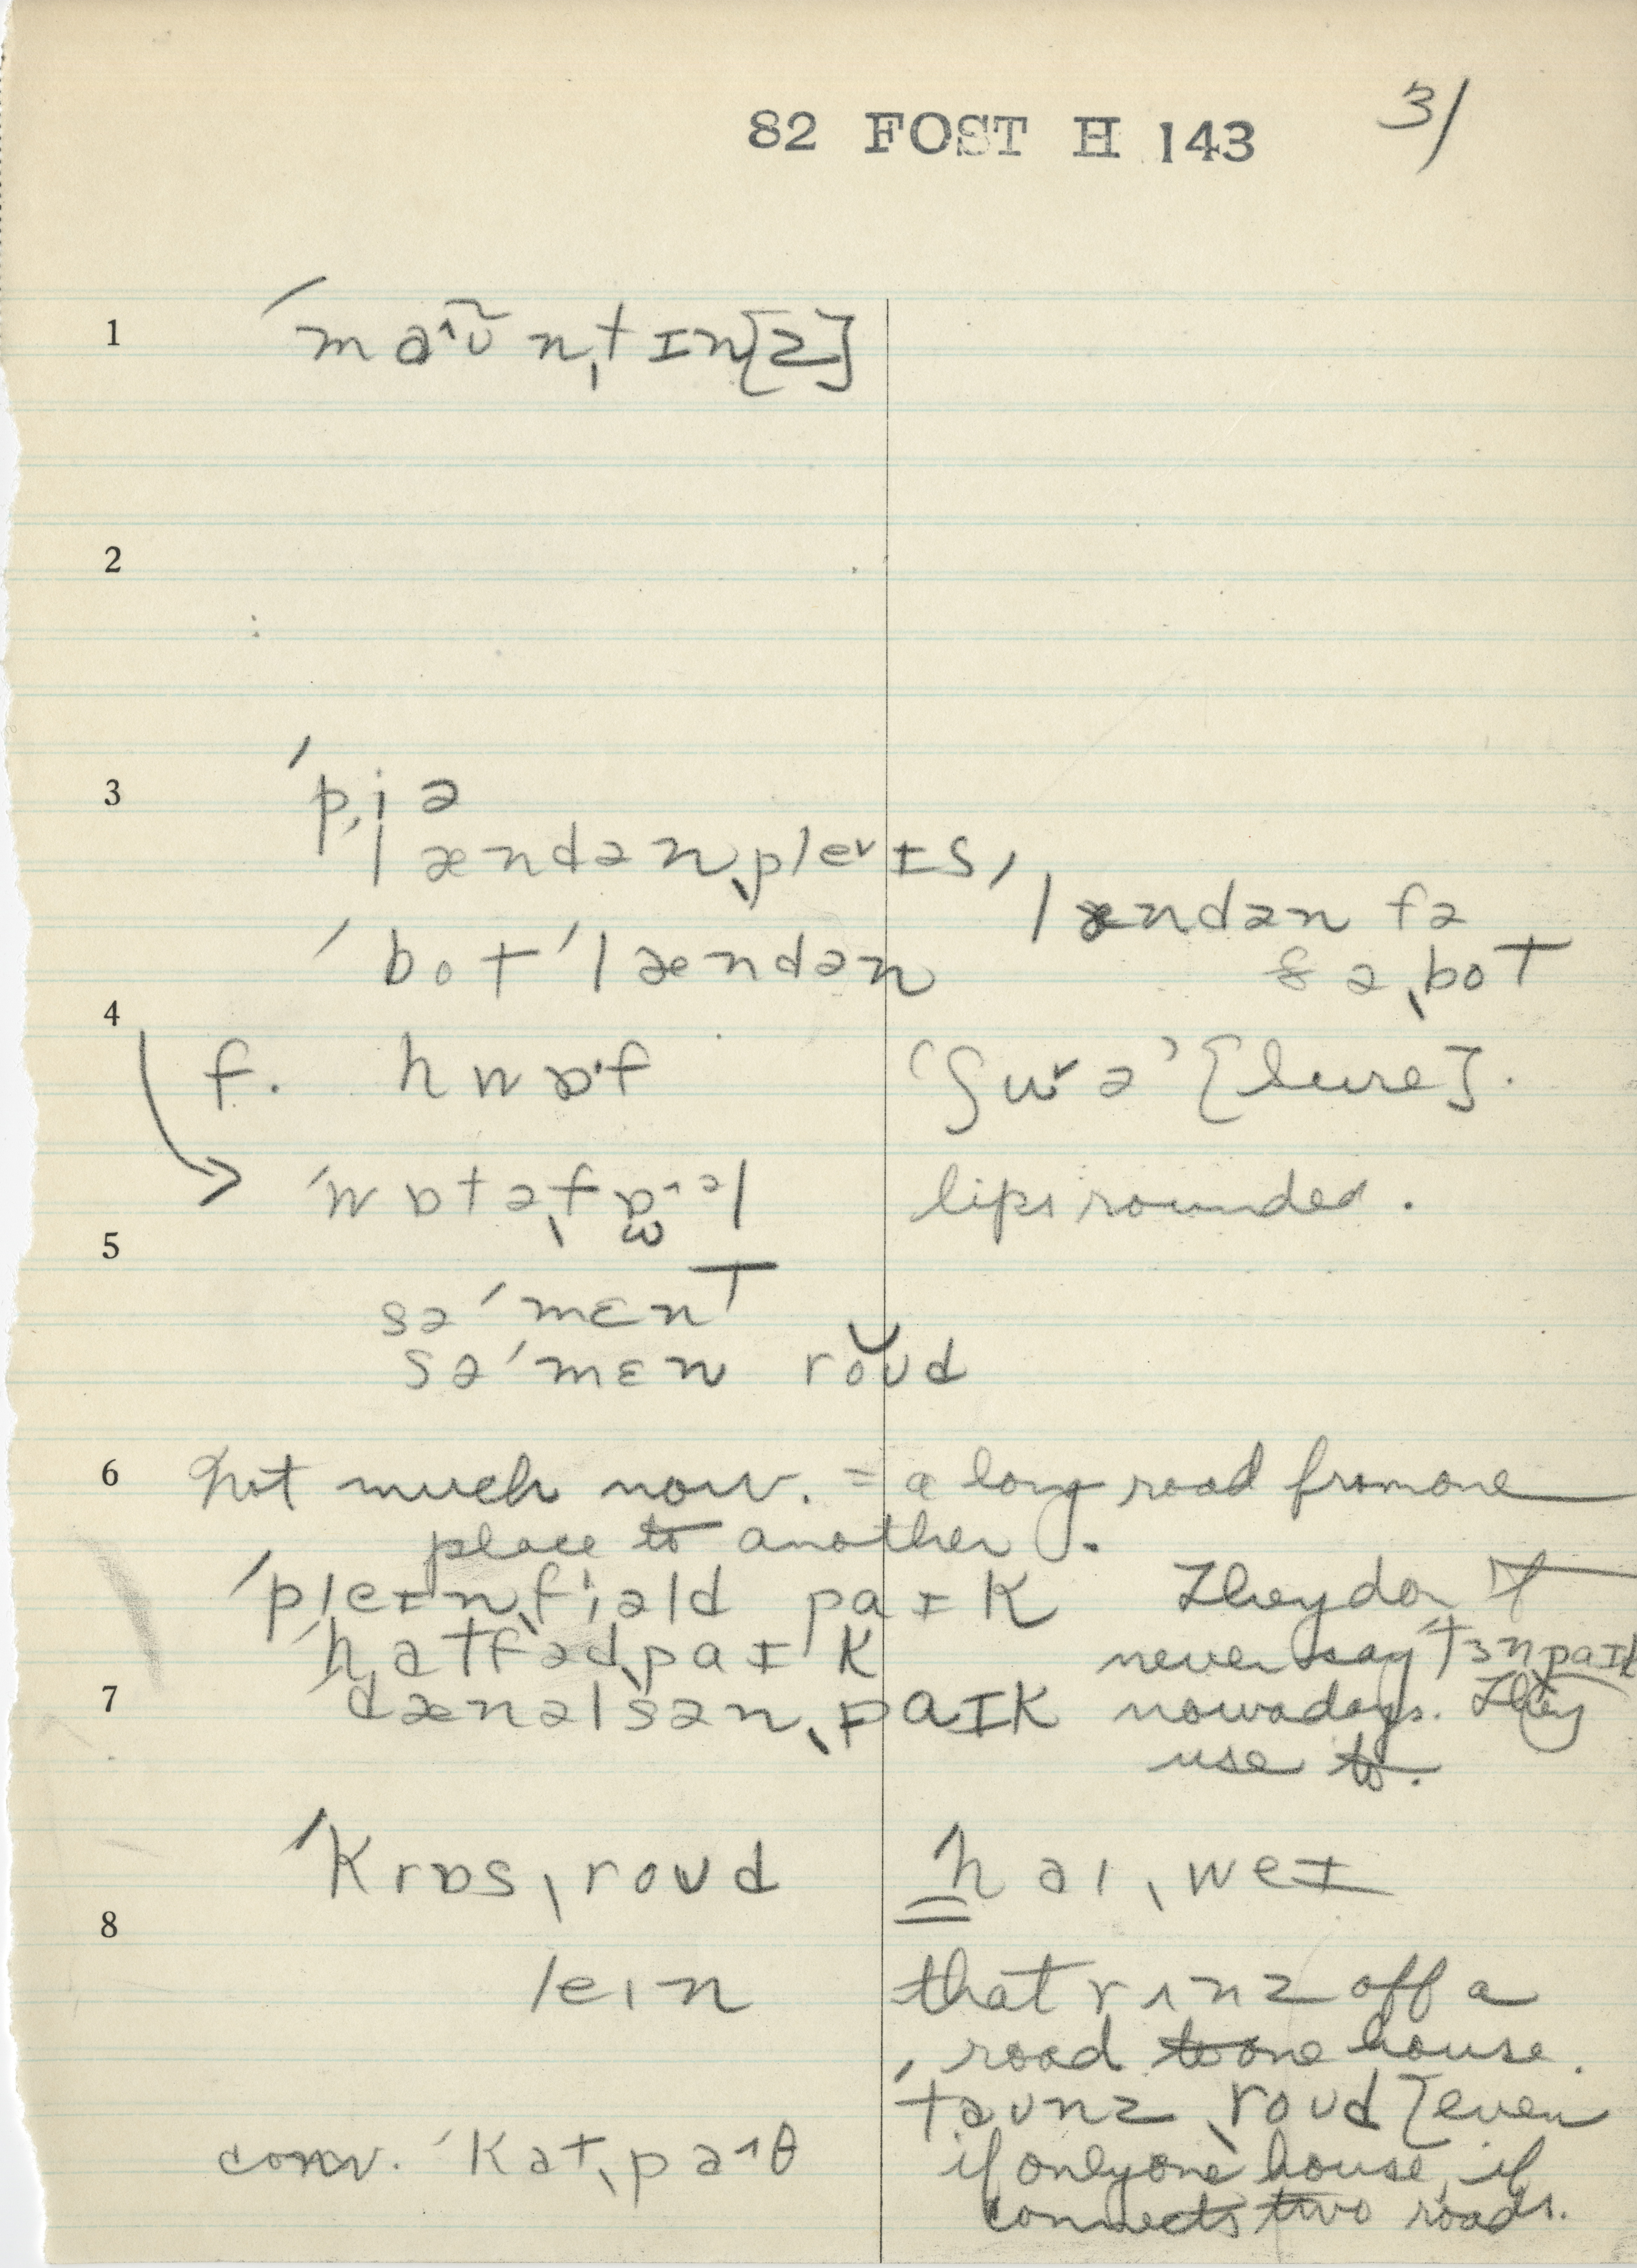 82 FOST H 143
3/
1 ˈmaˆʊ̃nˌtɪn[z]
2
3 ˈpˌjə
lændənˌpleˇɪs,
lændən fə
ˈbot ˈlændən
ðəˌbot
4
f. hwɒˑf
'ʃuˇə' [lure].
ˈwɒtəˌfɒˆəl
lips rounded.
5
səˈmɛnt
səˈmɛn roʊd
6 not much now. = a long road from one
place to another.
ˈpleɪnˌfiəld paɪk
They don't
ˈhatfədˌpaɪk
never say tɜnpaɪk
7 dænəlsənˌpaɪk
nowadays. They
use to.
ˈkrɒsˌroʊd
haɪˌweɪ
8
leɪn
that rʌnz off a
road to one house.
ˈtaʊnzˌroʊd [even
conv. ˈkatˌpaˆθ
if only one house, if
connects two roads.